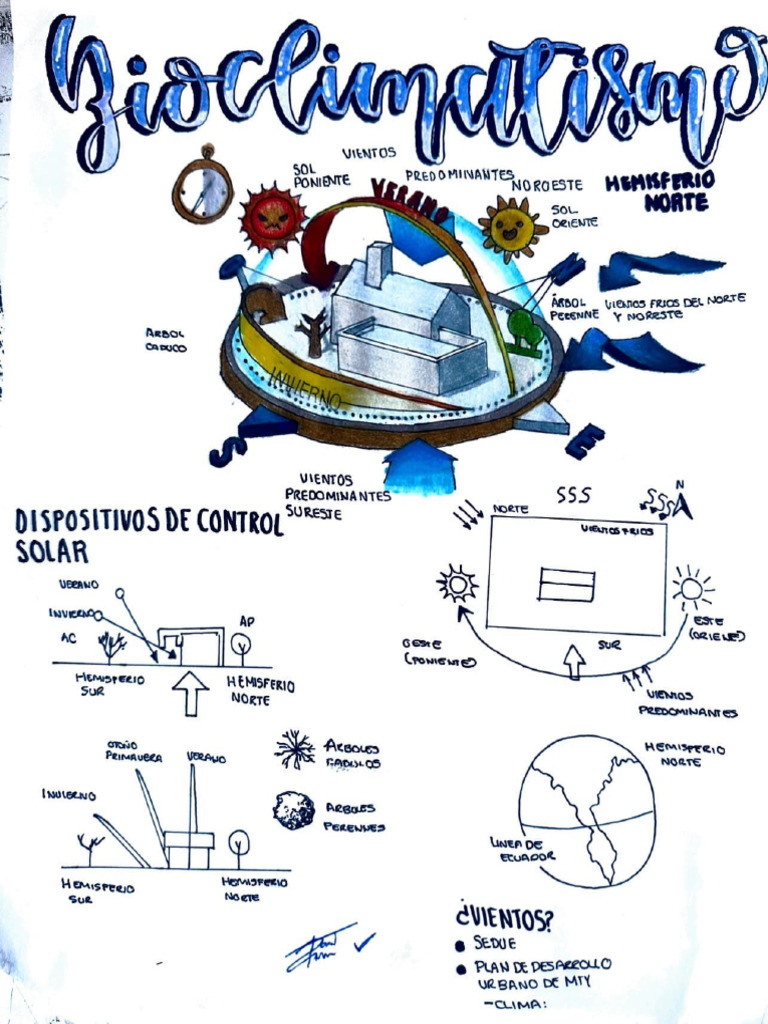 Bioclimatismo
VIENTOS
PREDOMINANTES
NOROESTE
SOL
PONIENTE
VERANO
HEMISFERIO
NORTE
SOL
ORIENTE
N
ÁRBOL
PERENNE
VIENTOS FRIOS DEL NORTE
Y NORESTE
ARBOL
CADUCO
INVIERNO
S
E
VIENTOS
PREDOMINANTES
SURESTE
DISPOSITIVOS DE CONTROL
SOLAR
VERANO
INVIERNO
AC
AP
HEMISFERIO
SUR
HEMISFERIO
NORTE
NORTE
SSS
SSS
N
VIENTOS FRIOS
OESTE
(PONIENTE)
SUR
ESTE
(ORIENTE)
VIENTOS
PREDOMINANTES
OTOÑO
PRIMAVERA
VERANO
INVIERNO
HEMISFERIO
SUR
HEMISFERIO
NORTE
ARBOLES
ARBOLES
PERENNES
HEMISFERIO
NORTE
LINEA DE
ECUADOR
¿VIENTOS?
SEDUE
PLAN DE DESARROLLO
URBANO DE MTY
-CLIMA: